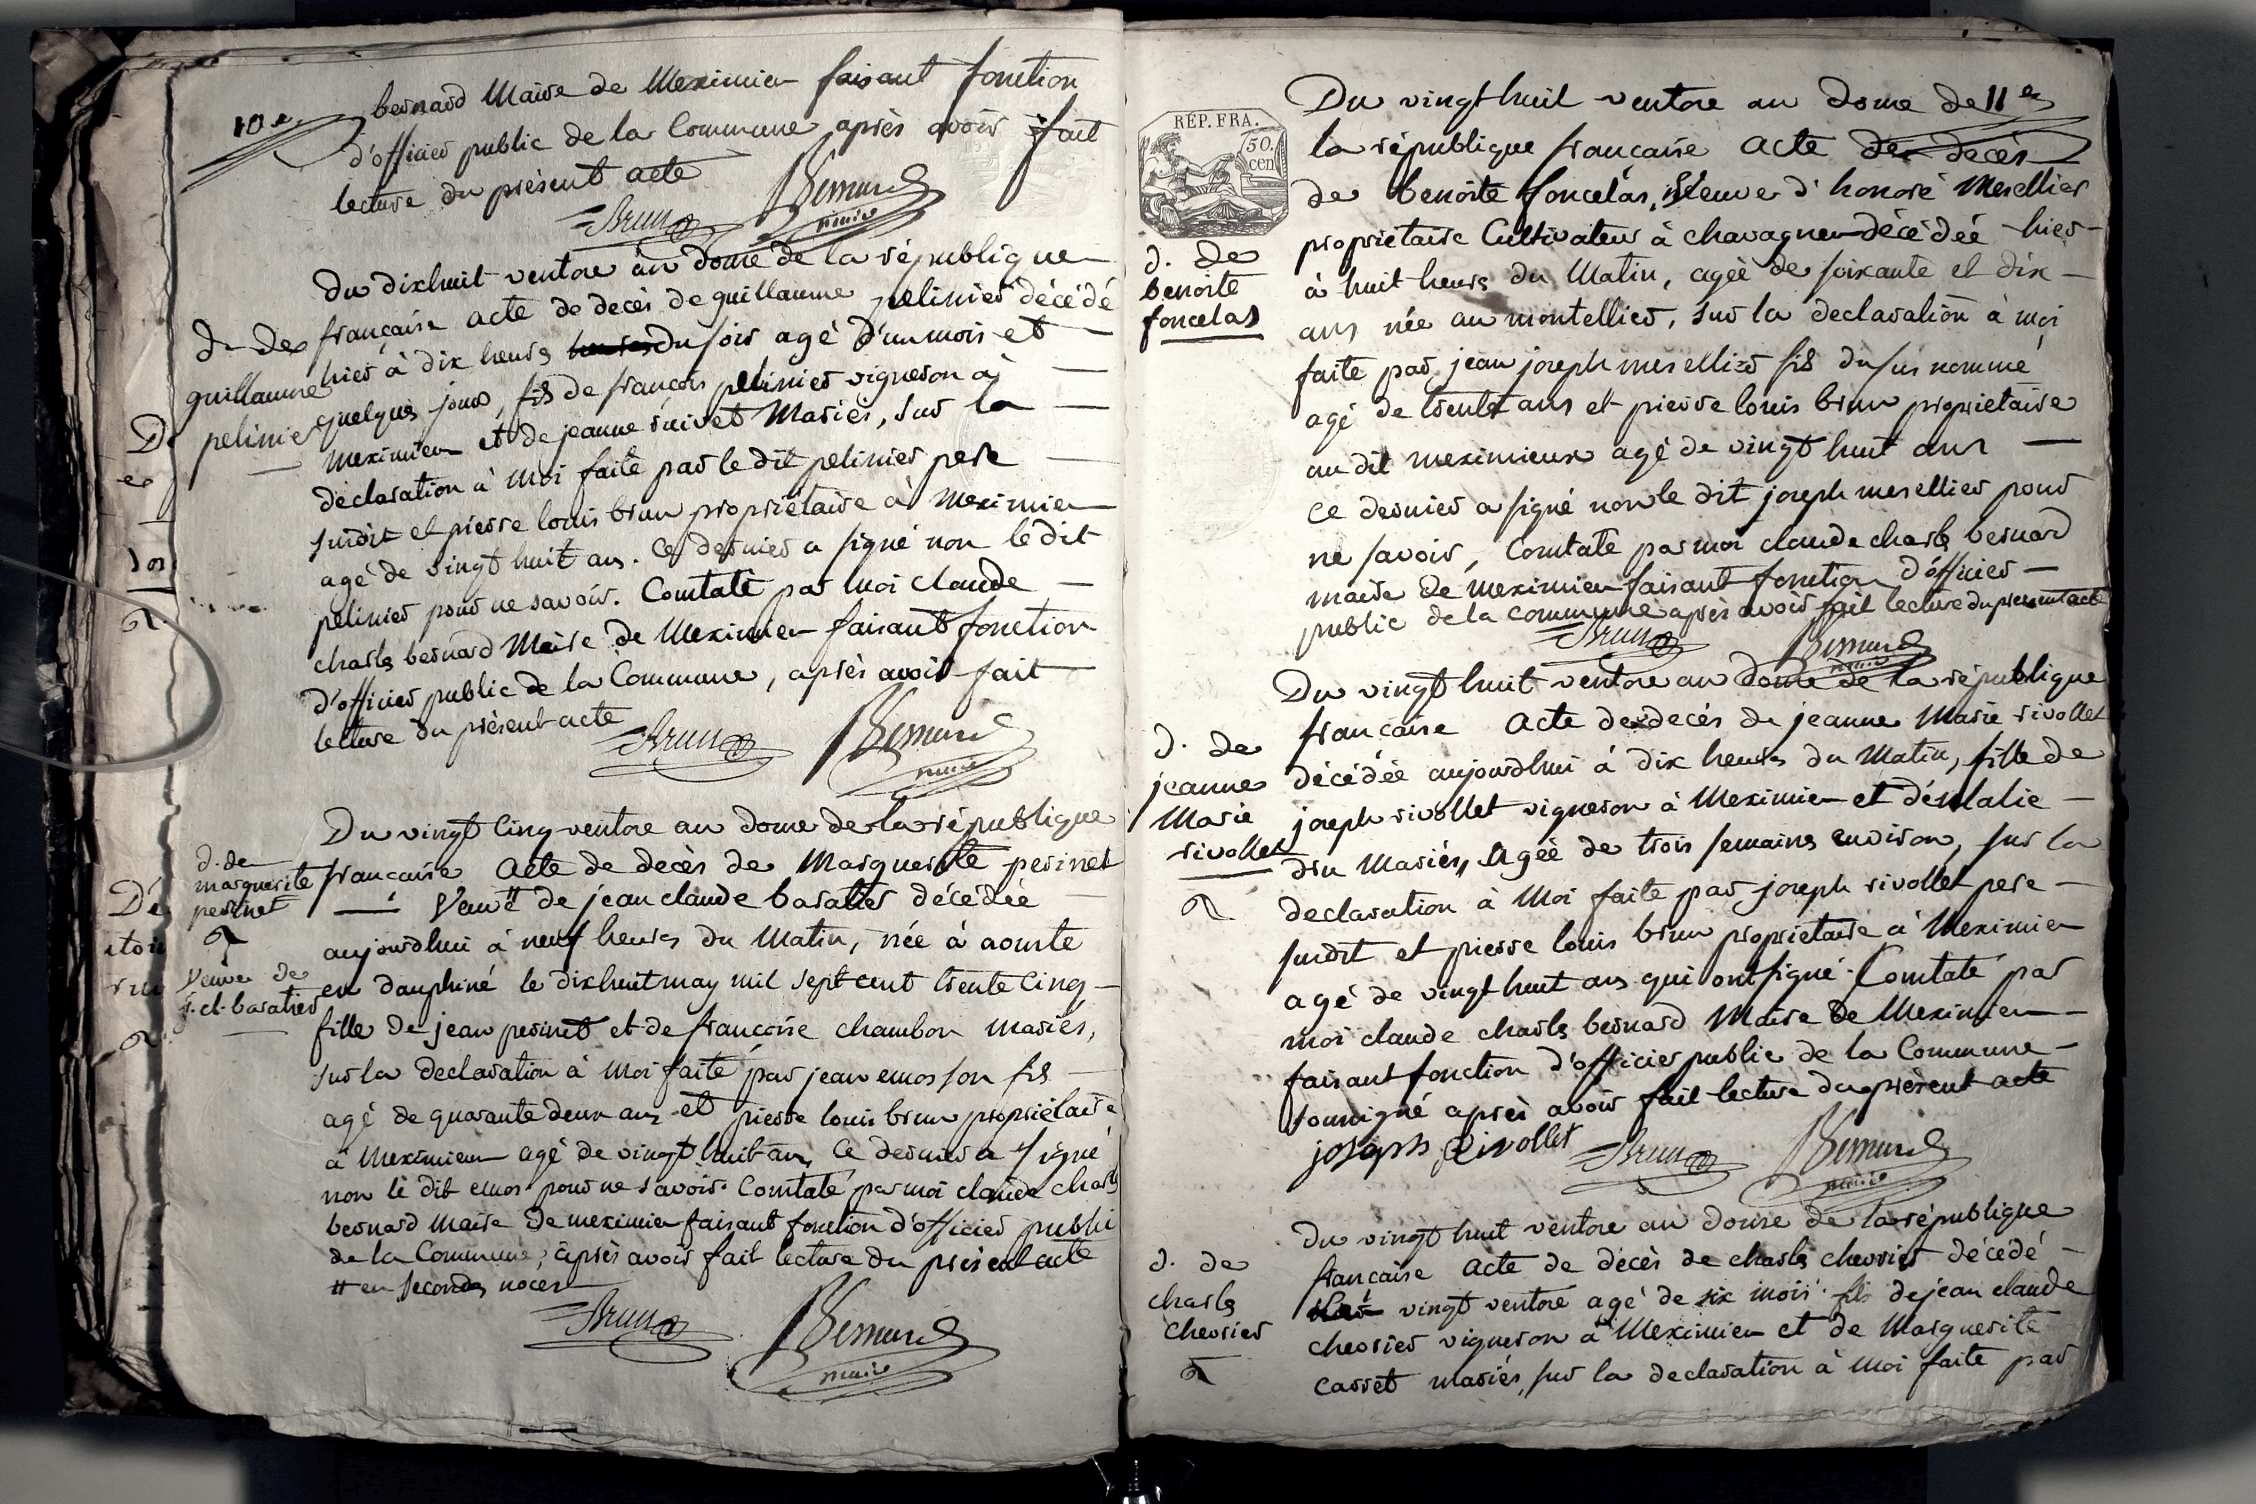 10e
bernard Maire de Meximieu faisant fonction
d'officier public de la Commune après avoir fait
lecture du présent acte
Brun Bernard
maire
du dixhuit ventose an douze de la république
d. de
guillaume
pelinier
française acte de decès de guillaume pelinier décédé
hier à dix heures du soir agé d'un mois et
quelques jours, fils de françois pelinier vigneron à
meximieu et de jeanne suivet Mariés, sur la
declaration à moi faite par le dit pelinier pere
susdit et pierre louis brun propriétaire à Meximieu
agé de vingt huit ans. Ce dernier a signé non le dit
pelinier pour ne savoir. Constaté par moi claude
charles bernard Maire de Meximieu faisant fonction
d'officier public de la Commune, après avoir fait
lecture du présent acte
Brun Bernard
maire
Du vingt cinq ventose an douze de la république
d. de
marguerite
perinet
veuve de
j. cl. baratier
française Acte de decès de Marguerite perinet
Veuve # de jean claude baratier décédée
aujourdhui à neuf heures du Matin, née à aouste
en dauphiné le dixhuit may mil sept cent trente cinq
fille de jean perinet et de françoise chambon mariés,
sur la declaration à moi faite par jean emos son fils
agé de quarante deux ans et pierre louis brun propriétaire
à Meximieu agé de vingt huit ans, Ce dernier a signé
non le dit emos pour ne savoir. Constaté par moi claude charles
bernard maire de meximieu faisant fonction d'officier public
de la Commune, après avoir fait lecture du présent acte
# en secondes noces
Brun Bernard
maire
RÉP. FRA.
50.
cen
11e
Du vingt huit ventose an douze de
la république française acte de decès
d. de
benoite
foncelas
de benoite foncelas, veuve d'honoré Mesellier
propriétaire Cultivateur à chavagneu décédée hier
à huit heures du Matin, agée de soixante et dix
ans née au montellier, sur la declaration à moi
faite par jean joseph mesellier fils du sus nommé
agé de trente ans et pierre louis brun propriétaire
au dit meximieux agé de vingt huit ans
ce dernier a signé non le dit joseph mesellier pour
ne savoir, Constaté par moi claude charles bernard
maire de meximieu faisant fonction d'officier
public de la commune après avoir fait lecture du present acte
Brun Bernard
maire
Du vingt huit ventose an douze de la république
d. de
jeanne
Marie
rivollet
française Acte de decès de jeanne Marie rivollet
décédée aujourdhui à dix heures du Matin, fille de
joseph rivollet vigneron à Meximieu et d'eulalie
dru Mariés, Agée de trois semaines environ, sur la
declaration à Moi faite par joseph rivollet pere
susdit et pierre louis brun propriétaire à Meximieu
agé de vingt huit ans qui ont signé. Constaté par
moi claude charles bernard Maire de Meximieu
faisant fonction d'officier public de la Commune
soussigné après avoir fait lecture du présent acte
joseph Rivollet Brun Bernard
maire
Du vingt huit ventose an douse de la république
d. de
charles
chevrier
française Acte de décès de charles chevrier décédé
vingt ventose agé de six mois fils de jean claude
chevrier vigneron à Meximieu et de Marguerite
carret mariés, sur la declaration à moi faite par